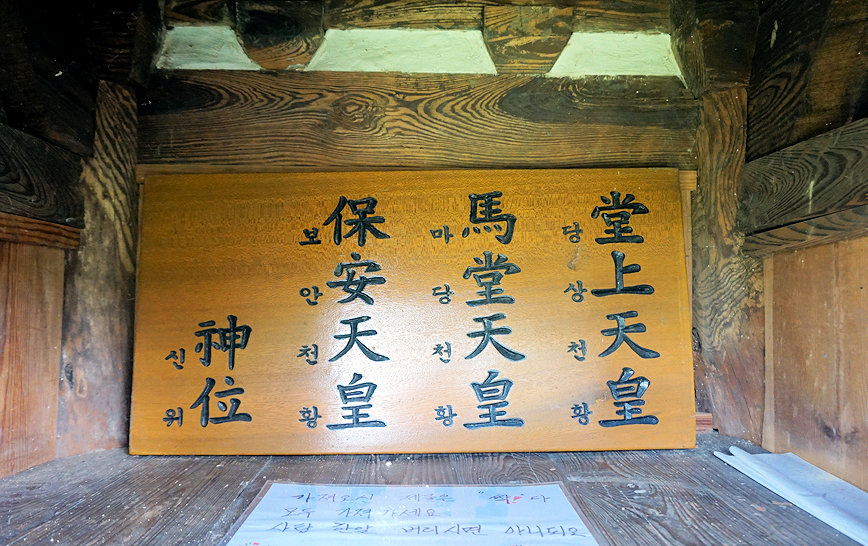 堂上天皇
당상천황
馬堂天皇
마당천황
保安天皇
보안천황
神位
신위
가져오신 제물은 다
모두 가져가세요
버리시면 아니되오